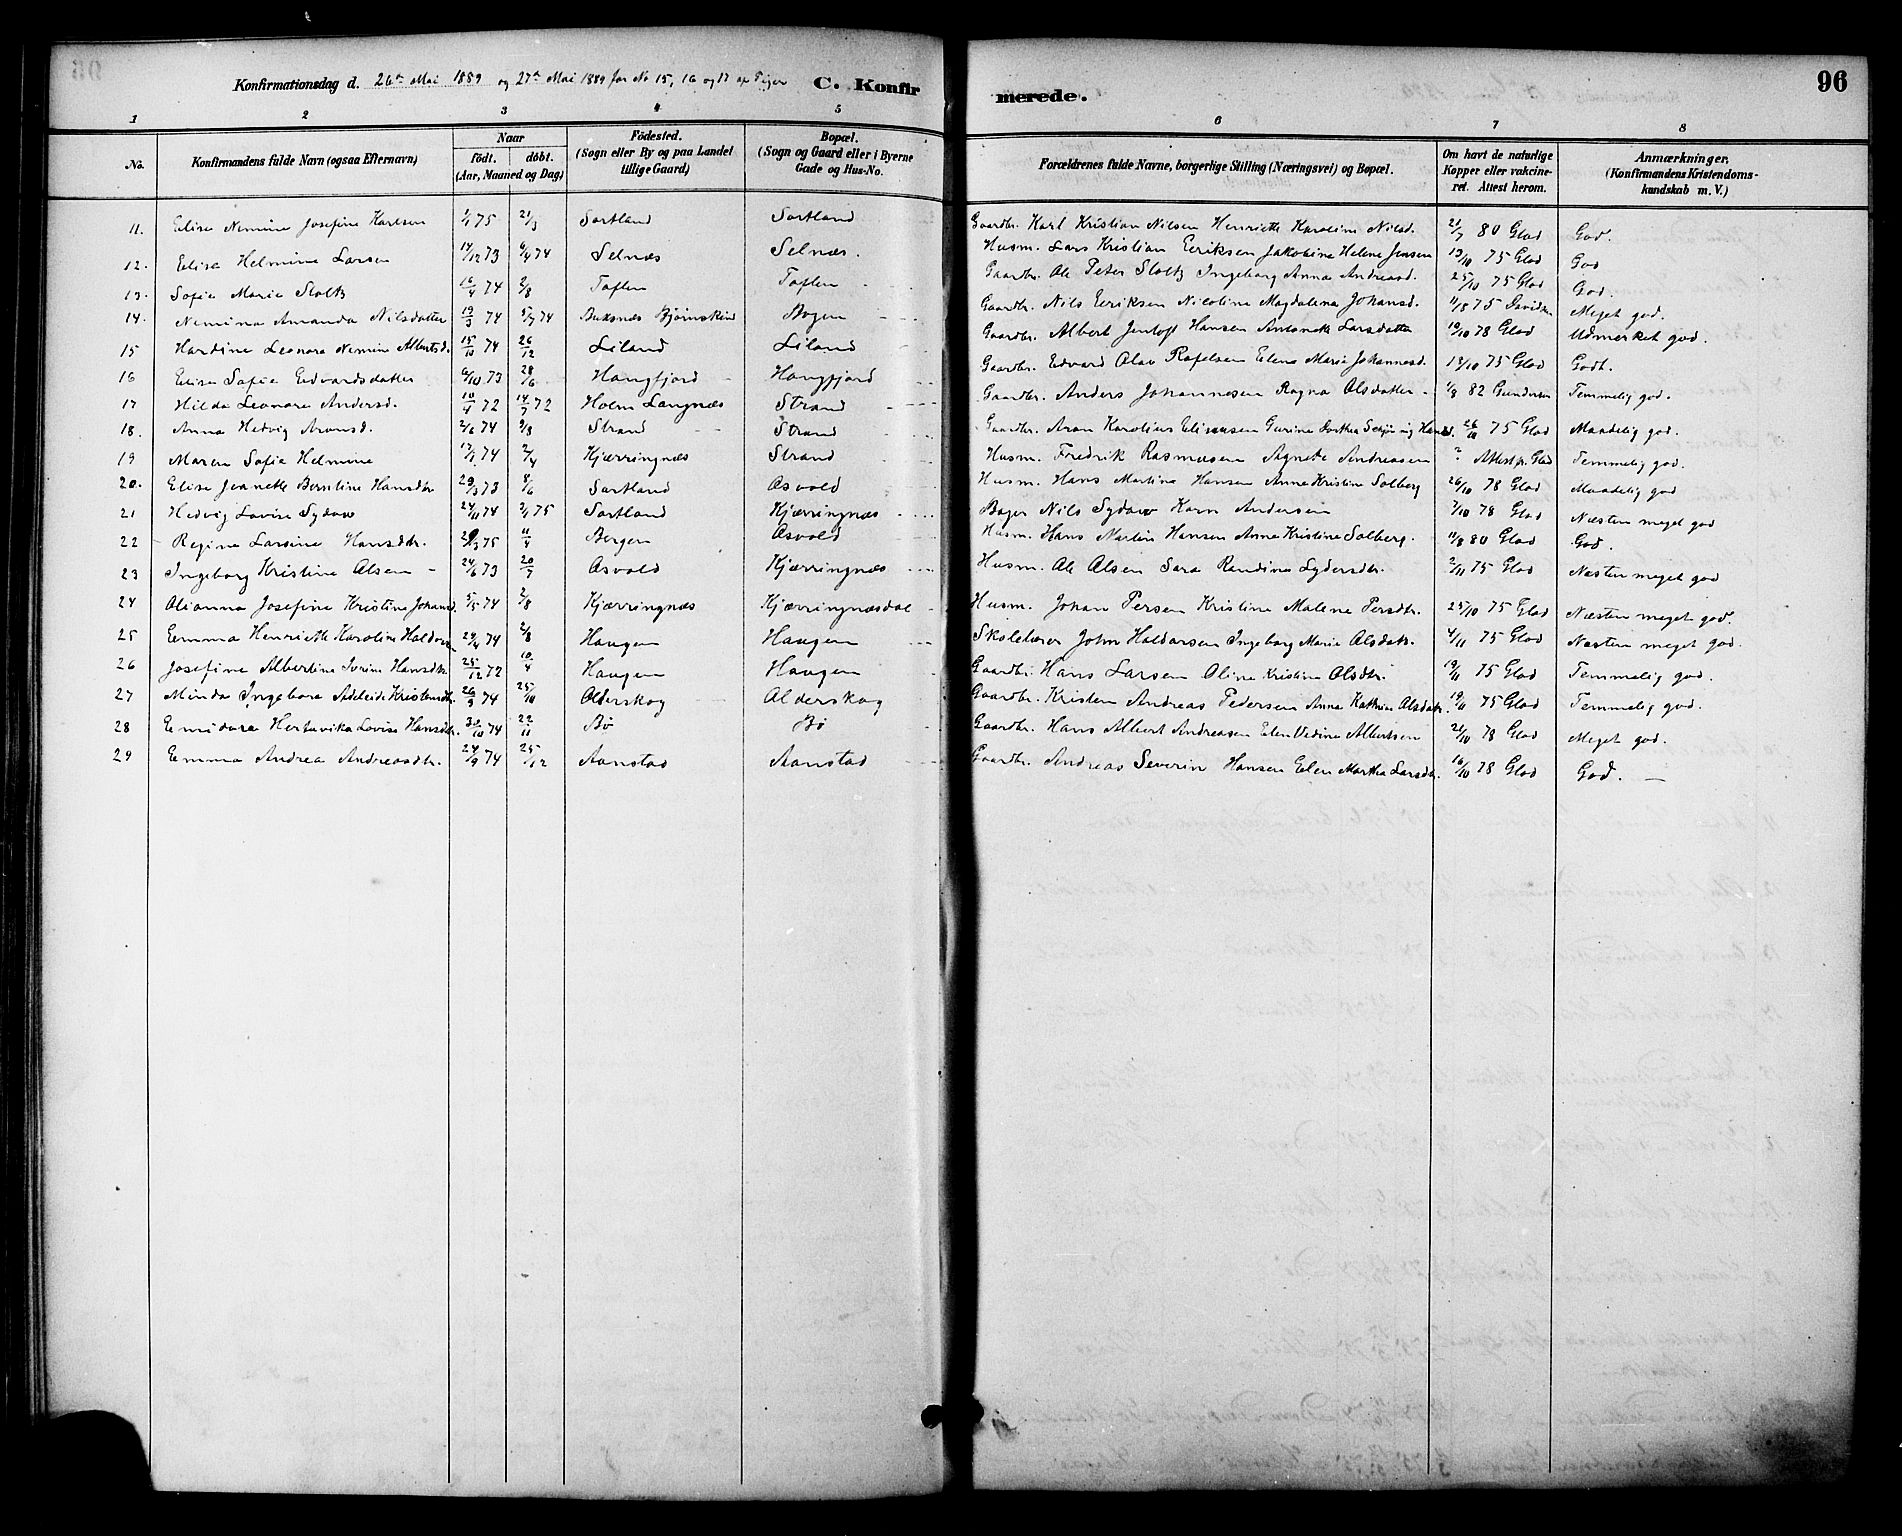 Konfirmationsdag d. 26de Mai 1889 og 27de Mai 1889 for No 15, 16 og 17 af Piger
C. Konfirmerede.
96
1 2 3 4 5 6 7 8
No.
Konfirmandens fulde Navn (ogsaa Efternavn)
Naar
født. døbt.
(Aar, Maaned og Dag)
Födested.
(Sogn eller By og paa Landet tillige Gaard)
Bopæl.
(Sogn og Gaard eller i Byerne Gade og Hus-No.
Forældrenes fulde Navne, borgerlige Stilling (Næringsvei) og Bopæl.
Om havt de naturlige Kopper eller vakcineret. Attest herom.
Anmærkninger.
(Konfirmandens Kristendomskundskab m. V.)
11. Elise Nemine Josefine Karlsen 1/1 75 21/3 Sortland Sortland Gaardbr. Karl Kristian Nilsen Henriette Karoline Nilsd. 21/7 80 Glad God.
12. Elisa Helmine Larsen 14/12 73 6/4 74 Selnæs Selnæs. Husm. Lars Kristian Eeriksen Jakobine Helene Jensen 13/10 75 Glad God
13. Sofie Marie Stoltz 16/4 74 2/8 Toften Toften Gaardbr. Ole Peter Stoltz Ingeborg Anna Andreasd. 25/10 75 Glad God.
14. Nemina Amanda Nilsdatter 19/3 74 5/7 74 Buksnæs Bjørnskin Bogen Gaardbr. Nils Eeriksen Nicoline Magdalena Johansd. 11/8 75 Davidsen Meget god.
15 Hardine Leonora Nemine Albertsd. 15/10 74 26/12 Liland Liland Gaardbr. Albert Jentoft Hansen Antonette Larsdatter 19/10 78 Glad Udmerket god.
16 Elise Sofie Edvardsdatter 6/10 73 28/6 Hougfjord Hougfjord Gaardbr. Edvard Olav Rafelsen Elena Maria Johannesd. 13/10 75 Glad Godt.
17 Hilda Leonora Andersd. 10/4 72 14/7 72 Holm Langnæs Strand Gaardbr. Anders Johannesen Ragna Olsdatter 1/8 82 Gundersen Temmelig god.
18. Anna Hedvig Aronsd. 2/6 74 9/8 Strand Strand Gaardbr. Aron Karolius Elinasen Gurine Dorthea Hansd. 26/10 75 Glad Maadelig god.
19 Maren Sofie Helmine 17/1 74 7/4 Kjærringnæs Strand Husm. Fredrik Rasmusen Agnete Andreasen ? Attest fr. Glad Temmelig god.
20. Elise Jeanette Berntine Hansdtr 29/3 73 8/6 Sortland Osvold Husm. Hans Martina Hansen Anne Kristine Solberg 26/10 78 Glad Maadelig god
21 Hedvig Lovise Sydow 24/11 74 3/1 75 Sortland Kjærringnæs Bager Nils Sydow Karn Andersen 7/10 78 Glad Næsten meget god
22 Regine Larsine Hansdtr. 29/3 75 11/4 Bergen Osvold Husm. Hans Martin Hansen Anne Kristine Solberg. 11/8 80 Glad God.
23 Ingeborg Kristine Olsen 24/6 73 20/7 Osvold Kjærringnæs Husm. Ole Olsen Sara Randina Lydersdtr. 2/11 75 Glad Næsten meget god
24 Olianna Josefine Kristina Johansd. 5/5 74 2/8 Kjærringnæs Kjærringnæsdal Husm. Johan Persen Kristine Malene Persdtr. 25/10 75 Glad Næsten meget god.
25 Emma Henriette Karoline Haldorsen 29/4 74 2/8 Haugen Haugen Skolelærer John Haldorsen Ingeborg Marie Olsdatr. 4/11 75 Glad Næsten meget god.
26 Josefine Albertine Ivrine Hansdtr 25/12 72 10/4 Haugen Haugen Gaardbr. Hans Larsen Oline Kristine Olsdtr. 19/11 75 Glad Temmelig god.
27 Minda Ingeborg Adeleide Kristensdtr. 26/9 74 25/10 Olderskog Alderskog Gaardbr. Kristen Andreas Pedersen Anna Kathrine Olsdatr. 19/11 75 Glad Temmelig god.
28 Emidora Hertevika Lovise Hansdtr. 30/10 74 22/11 Bø Bø Gaardbr. Hans Albert Andreasen Elen Vedina Albertsen 21/10 78 Glad Meget god.
29 Emma Andrea Andreasdtr. 24/9 74 25/12 Aanstad Aanstad Gaardbr. Andreas Severin Hansen Elen Martha Larsdtr. 16/10 78 Glad God.